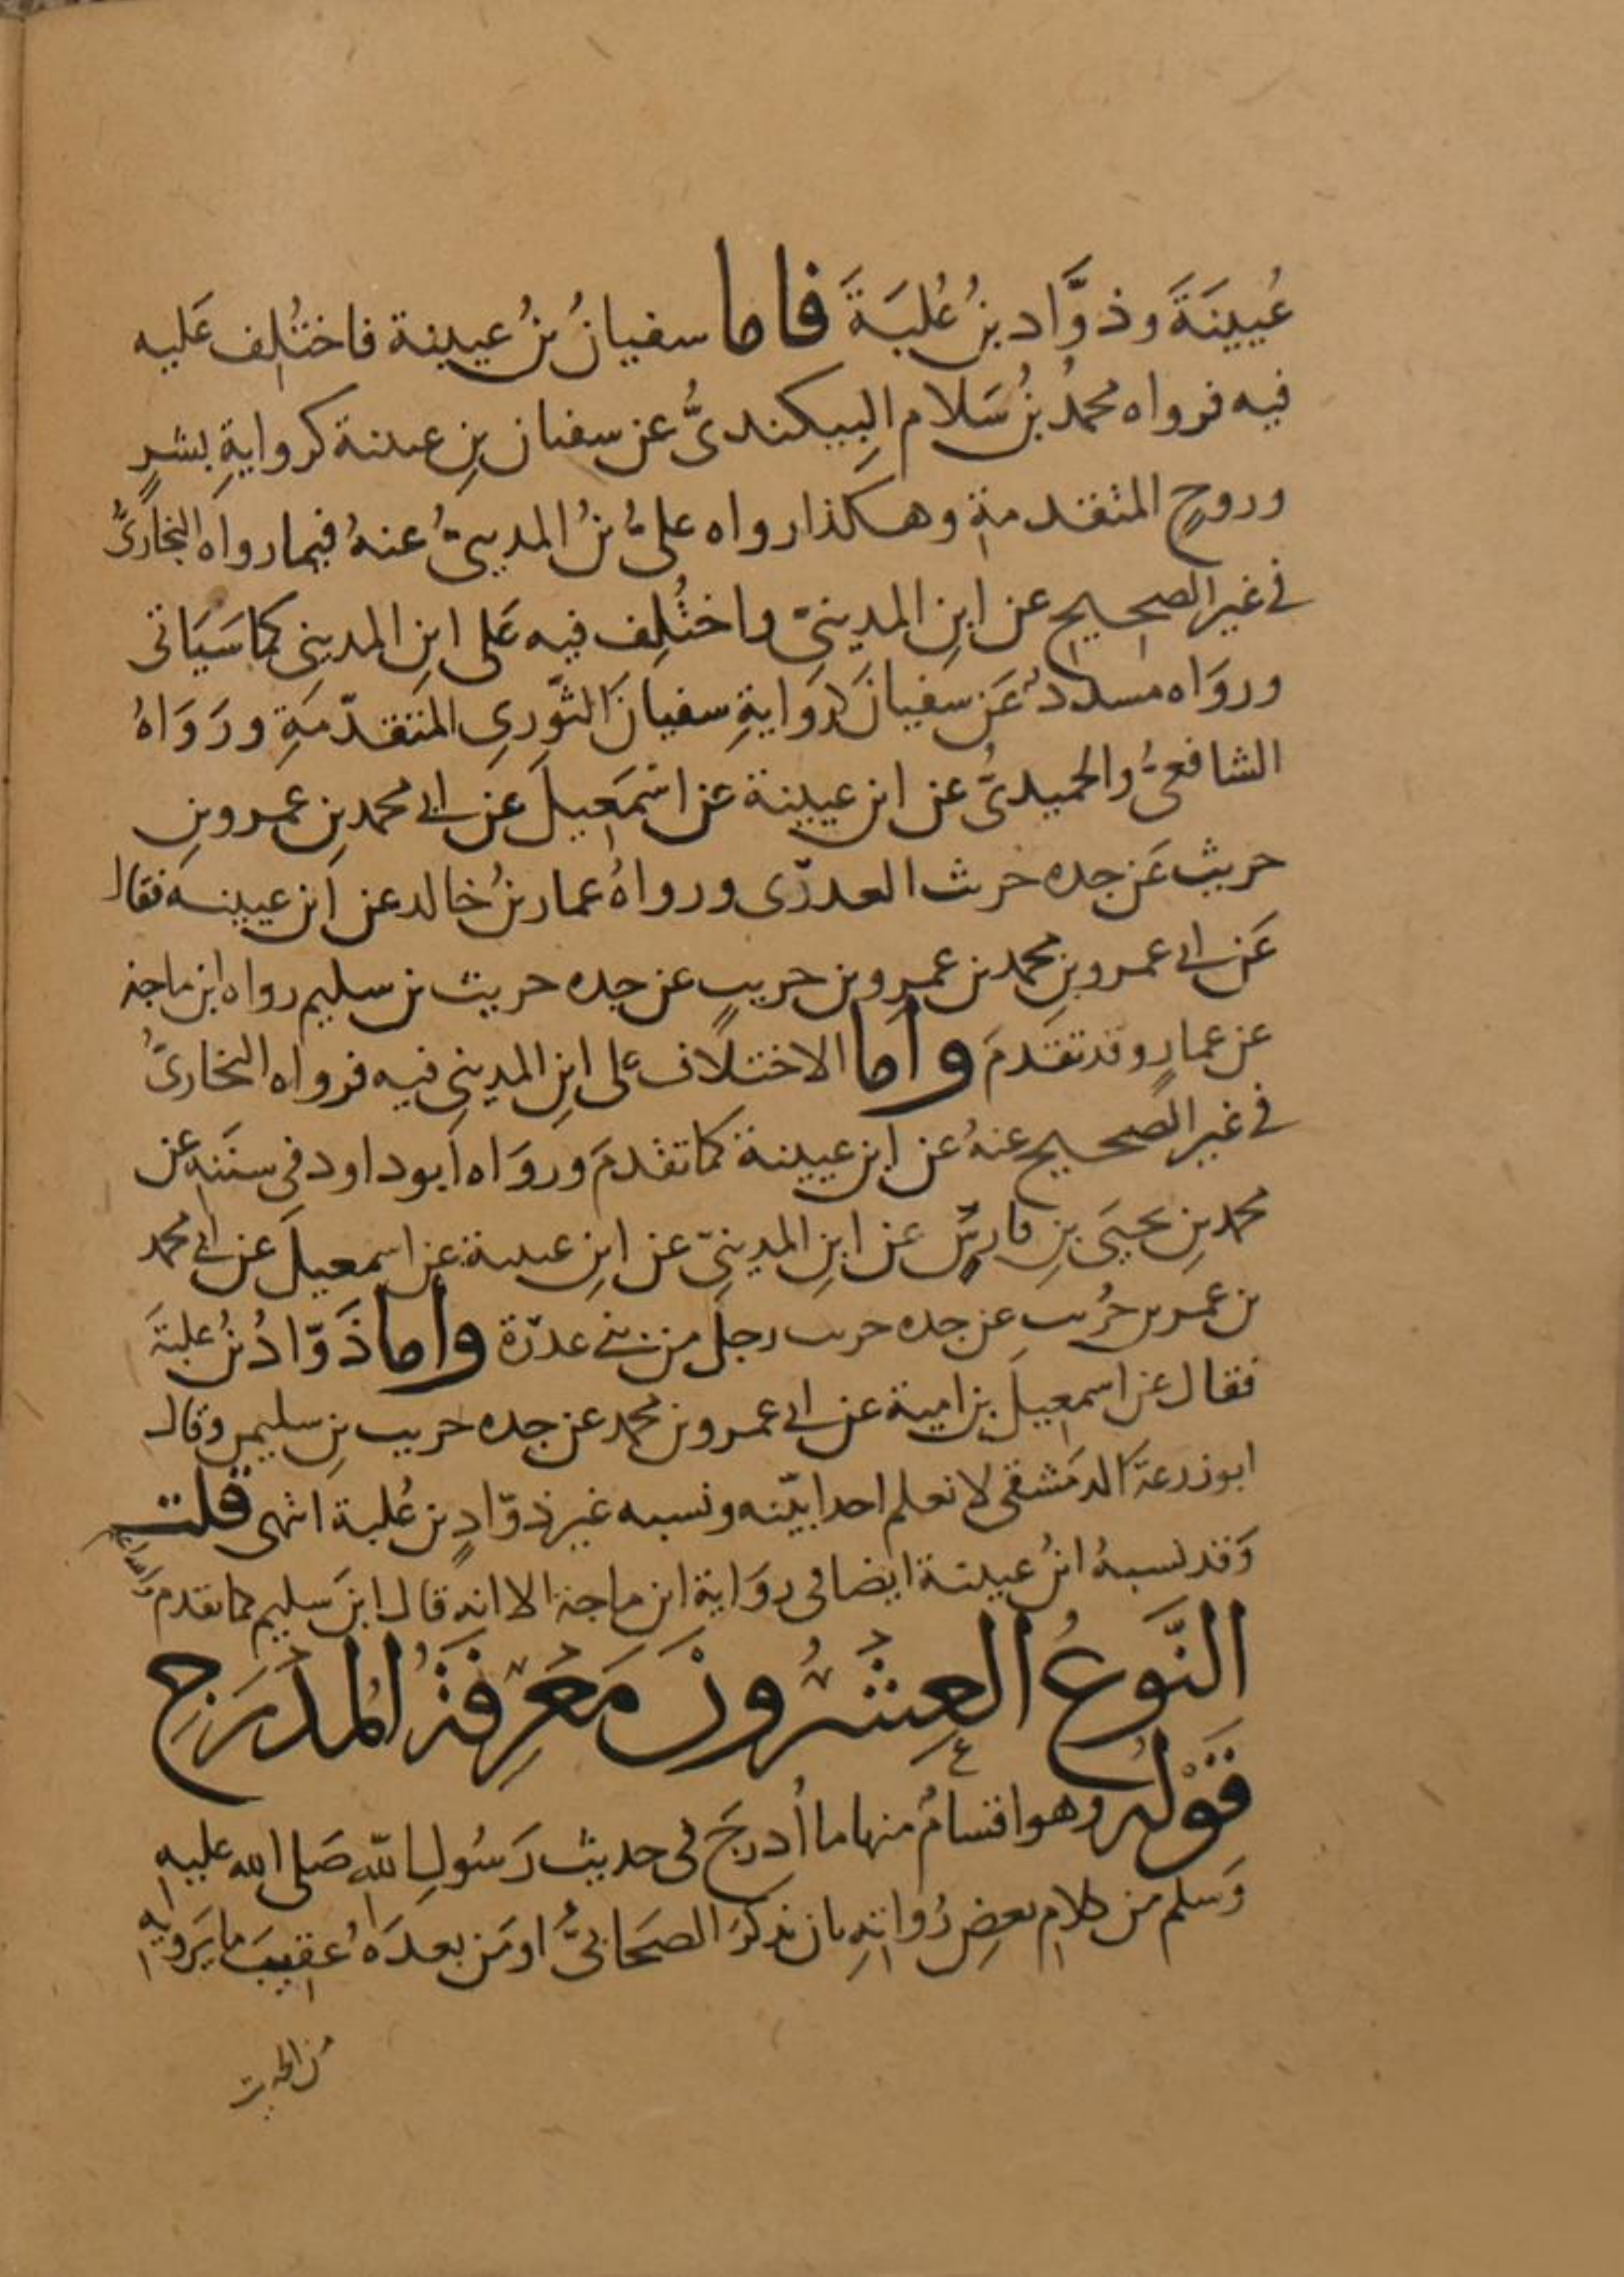 عُيينَةَ وذوَّاد بنُ عُلبَةَ فاما سفيانُ بنُ عيينة فاختُلِف عَليه
فيه فرواه محمدُ بنُ سَلام البِيكنديُّ عن سفيان بنِ عيينة كروايةِ بشرٍ
وروحٍ المتقدمةِ وهكذا رواه عليُّ بنُ المدينيُّ عنهُ فيما رواه البخاريُّ
في غير الصحيح عن ابنِ المدينيّ واختُلِف فيه عَلى ابنِ المديني كما سَيَاتى
ورَوَاه مسددٌ عَن سفيانَ كروَايةِ سفيانَ الثّوريِ المتَقدّمَةِ ورَوَاهُ
الشافعيُّ والحميديُّ عن ابن عيينة عن اسمَعيلَ عَن ابي محمد بنِ عمرو بنِ
حريثٍ عَن جده حريث العدري ورواهُ عمار بنُ خالد عن ابن عيينة فقال
عَن ابي عمرو بنِ محمد بن عمرو بن حريثٍ عن جده حريث بن سليم رواه ابن ماجة
عن عمارٍ وقد تقدمَ واما الاختلاف على ابنِ المديني فيه فرواه البخاريُّ
في غير الصحيح عنهُ عن ابن عيينة كما تقدمَ وروَاه ابو داود في سننه عن
محمد بنِ يحيَى بنِ فارسٍ عن ابنِ المدينيّ عن ابنِ عيينة عن اسمعيلَ عن ابي محمد
بن عمرو بن حُريث عن جده حريث رجل من بني عدرة واما ذَوّادُ بنُ علبَةَ
فقال عن اسمعيلَ بن امية عن ابي عمرو بن محمد عن جده حريث بنِ سليم وقال
ابو زرعة الدمشقي لا نعلم احدا بيّنه ونسبه غير ذوّادٍ بن عُلبة انتهى قلت
وَقد نسبهُ ابنُ عيينة ايضا في روَاية ابن ماجة الا انه قال ابن سَليم كما تقدم
النَّوعُ العِشرُونَ مَعْرِفَةُ المُدْرَجِ
قَوْله وهو اقسامٌ منها ما أُدرجَ في حديث رَسُولِ اللّه صَلى الله عليه
وَسلم من كلام بعضِ رُواتِهِ بان يَذكُرَ الصحَابيُّ او مَن بعدَهُ عقيبَ ما يَرويهِ
من الحديث